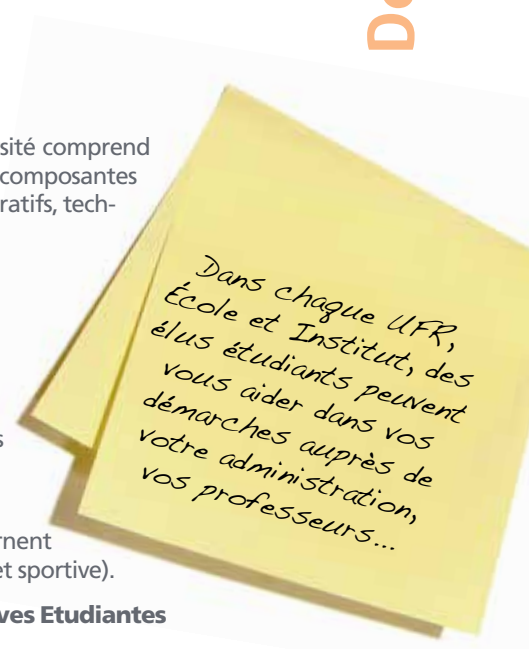 sité comprend
composantes
ratifs, tech-
s
rnent
et sportive).
ves Etudiantes
Dans chaque UFR,
École et Institut, des
élus étudiants peuvent
vous aider dans vos
démarches auprès de
votre administration,
vos professeurs...